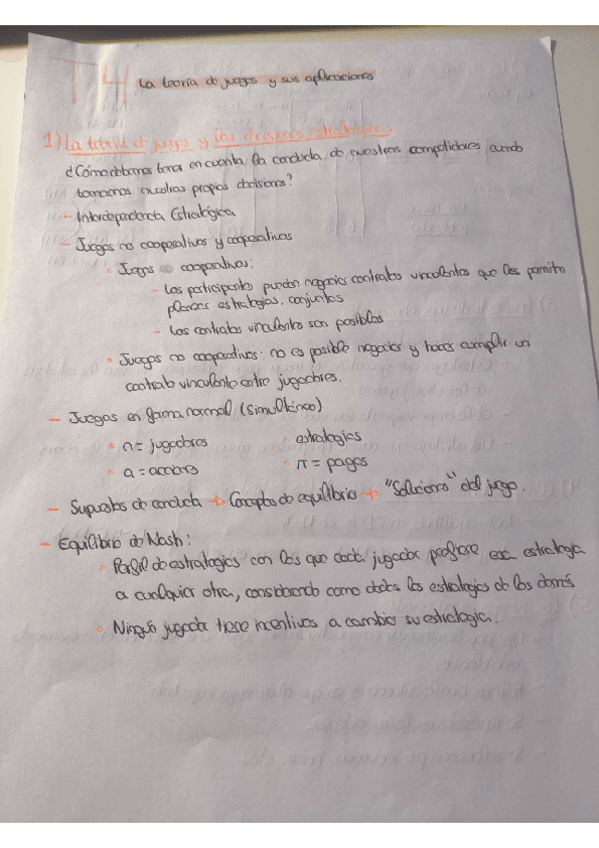 T4 La teoría de juegos y sus aplicaciones
1) La teoría de juegos y las decisiones estratégicas
¿Cómo debemos tener en cuenta la conducta de nuestros competidores cuando
tomamos nuestras propias decisiones?
- Interdependencia Estratégica
- Juegos no cooperativos y cooperativos
• Juegos cooperativos:
- Los participantes pueden negociar contratos vinculantes que les permiten
planear estrategias conjuntas
- Los contratos vinculantes son posibles
• Juegos no cooperativos: no es posible negociar y hacer cumplir un
contrato vinculante entre jugadores.
- Juegos en forma normal (simultáneo)
• n = jugadores • estrategias
• a = acciones • π = pagos
- Supuestos de conducta → Conceptos de equilibrio → "Soluciones" del juego.
- Equilibrio de Nash:
• Perfil de estrategias con las que cada jugador prefiere esa estrategia
a cualquier otra, considerando como dadas las estrategias de los demás
• Ningún jugador tiene incentivos a cambiar su estrategia.